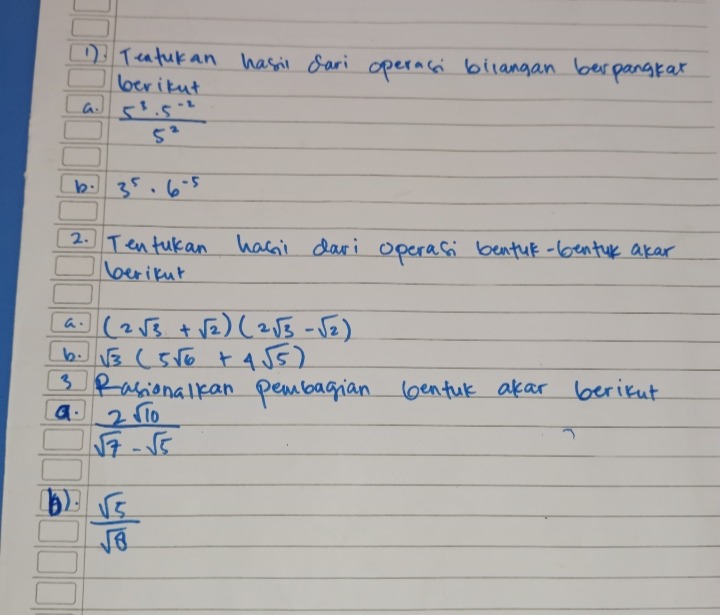 1). Tentukan hasil dari operasi bilangan berpangkat
berikut
a. 5³ . 5⁻² / 5²
b. 3⁵ . 6⁻⁵
2. Tentukan hasil dari operasi bentuk-bentuk akar
berikut
a. (2√3 + √2)(2√3 - √2)
b. √3 (5√6 + 4√5)
3 Rasionalkan pembagian bentuk akar berikut
a. 2√10 / √7 - √5
b). √5 / √8